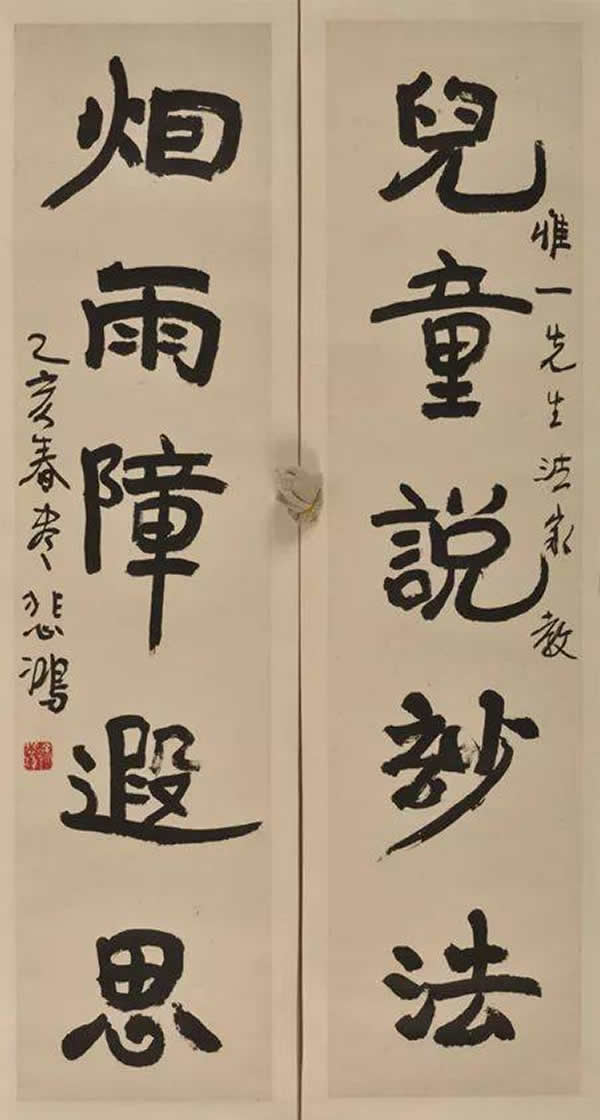 惟一先生法家教
兒童說訬法
烟雨障遐思
乙亥春尽悲鴻